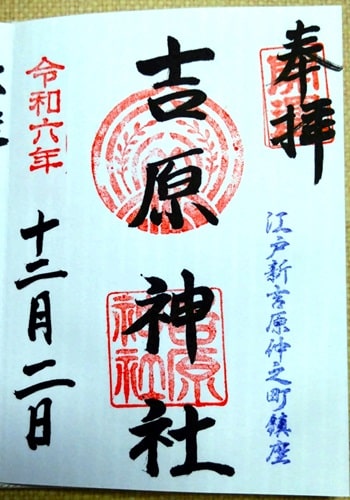 奉拝
開運
江戸新吉原仲之町鎮座
吉原神社
吉原
神社
令和六年
十二月二日